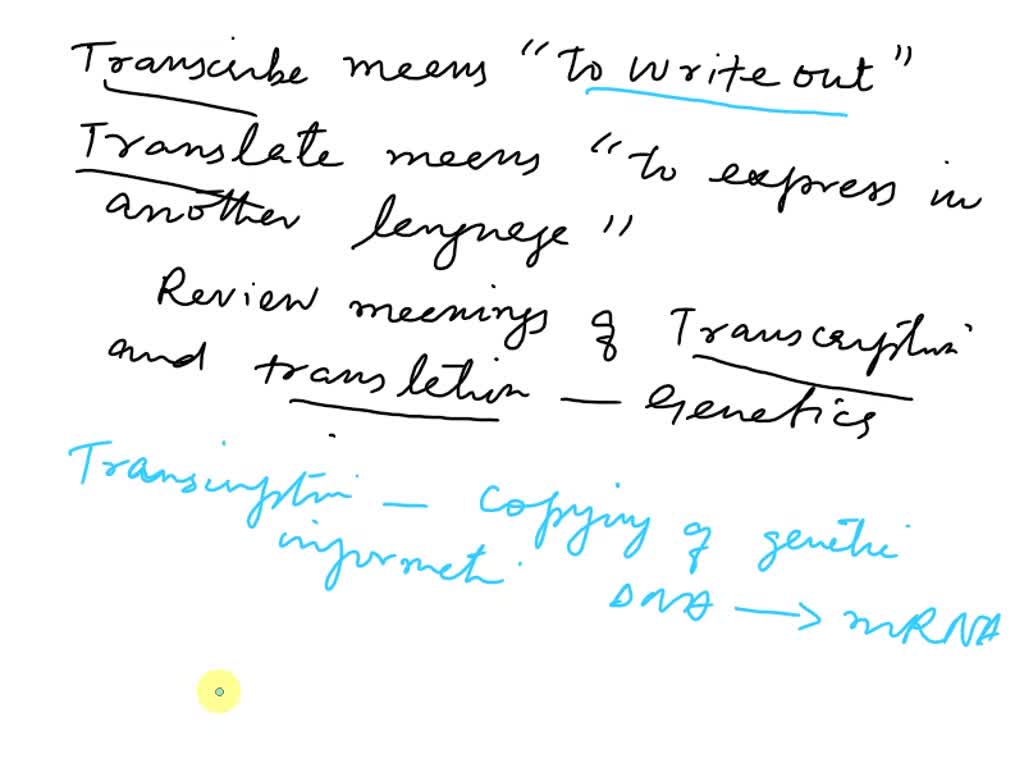 Transcribe means "to write out"
Translate means "to express in
another language"
Review meanings of Transcription
and translation — Genetics
Transcription — Copying of genetic
informati
DNA → mRNA